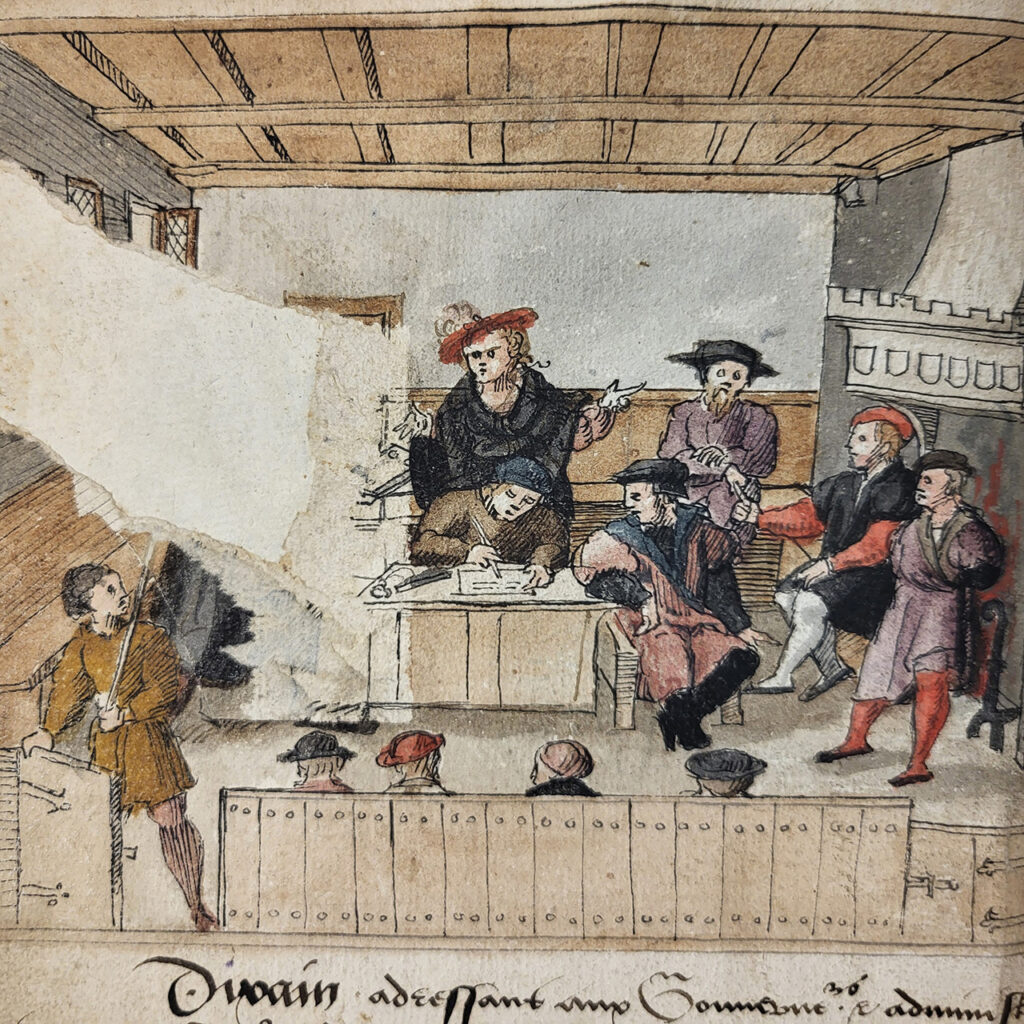 Dixain adressant aux Gouuerneurs & administ